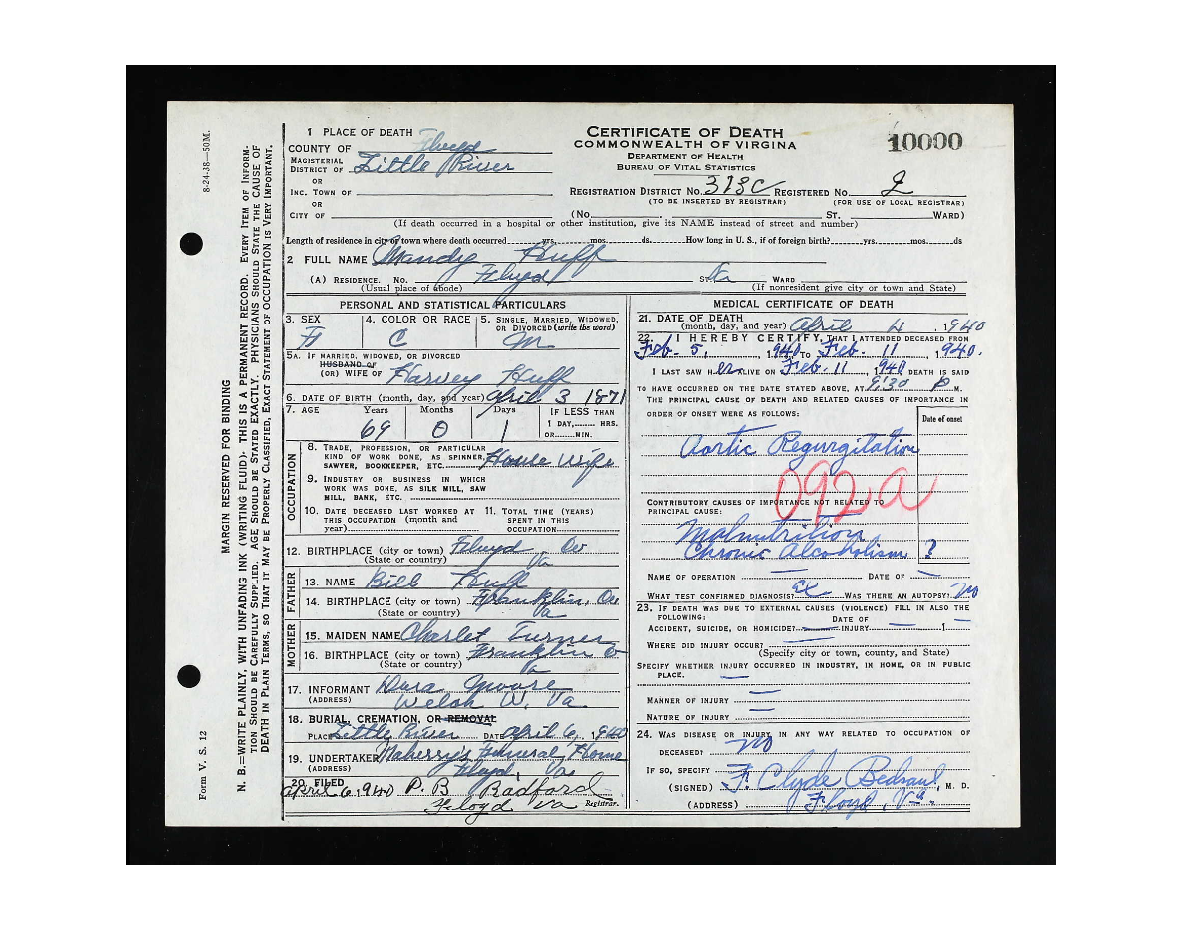 8-24-38—50M.
MARGIN RESERVED FOR BINDING
N. B.—WRITE PLAINLY, WITH UNFADING INK (WRITING FLUID). THIS IS A PERMANENT RECORD. EVERY ITEM OF INFORMA-
TION SHOULD BE CAREFULLY SUPPLIED. AGE SHOULD BE STATED EXACTLY. PHYSICIANS SHOULD STATE THE CAUSE OF
DEATH IN PLAIN TERMS, SO THAT IT MAY BE PROPERLY CLASSIFIED. EXACT STATEMENT OF OCCUPATION IS VERY IMPORTANT.
Form V. S. 12
CERTIFICATE OF DEATH
COMMONWEALTH OF VIRGINIA
DEPARTMENT OF HEALTH
BUREAU OF VITAL STATISTICS
10000
1 PLACE OF DEATH
COUNTY OF Floyd
MAGISTERIAL DISTRICT OF Little River
OR
INC. TOWN OF
OR
CITY OF
REGISTRATION DISTRICT No. 313C REGISTERED No. 2
(TO BE INSERTED BY REGISTRAR) (FOR USE OF LOCAL REGISTRAR)
(No. ST. WARD)
(If death occurred in a hospital or other institution, give its NAME instead of street and number)
Length of residence in city or town where death occurred yrs. mos. ds. How long in U. S., if of foreign birth? yrs. mos. ds
2 FULL NAME Mandy Huff
(A) RESIDENCE. No. Floyd ST. Va WARD
(Usual place of abode) (If nonresident give city or town and State)
PERSONAL AND STATISTICAL PARTICULARS
3. SEX F
4. COLOR OR RACE C
5. SINGLE, MARRIED, WIDOWED, OR DIVORCED (write the word) M
5A. IF MARRIED, WIDOWED, OR DIVORCED
HUSBAND OF
(OR) WIFE OF Harvey Huff
6. DATE OF BIRTH (month, day, and year) April 3 1871
7. AGE Years 69 Months 0 Days 1
IF LESS THAN
1 DAY, HRS.
OR MIN.
OCCUPATION
8. TRADE, PROFESSION, OR PARTICULAR
KIND OF WORK DONE, AS SPINNER,
SAWYER, BOOKKEEPER, ETC. House Wife
9. INDUSTRY OR BUSINESS IN WHICH
WORK WAS DONE, AS SILK MILL, SAW
MILL, BANK, ETC.
10. DATE DECEASED LAST WORKED AT
THIS OCCUPATION (month and
year)
11. TOTAL TIME (YEARS)
SPENT IN THIS
OCCUPATION
12. BIRTHPLACE (city or town) Floyd Co
(State or country) Va
FATHER
13. NAME Bill Huff
14. BIRTHPLACE (city or town) Franklin, Co
(State or country) Va
MOTHER
15. MAIDEN NAME Charlet Turner
16. BIRTHPLACE (city or town) Franklin Co
(State or country) Va
17. INFORMANT Dura Moore
(ADDRESS) Welch W. Va
18. BURIAL, CREMATION, OR REMOVAL
PLACE Little River DATE April 6, 1940
19. UNDERTAKER Maberry's Funeral Home
(ADDRESS) Floyd, Va
20. FILED
April 6, 1940 P. B Radford
Floyd Va Registrar.
MEDICAL CERTIFICATE OF DEATH
21. DATE OF DEATH
(month, day, and year) April 4, 1940
22. I HEREBY CERTIFY, THAT I ATTENDED DECEASED FROM
Feb- 5, 1940 TO Feb- 11, 1940.
I LAST SAW HER ALIVE ON Feb-11, 1940 DEATH IS SAID
TO HAVE OCCURRED ON THE DATE STATED ABOVE, AT 9:30 P M.
THE PRINCIPAL CAUSE OF DEATH AND RELATED CAUSES OF IMPORTANCE IN
ORDER OF ONSET WERE AS FOLLOWS:
Date of onset
Aortic Regurgitation
092a
CONTRIBUTORY CAUSES OF IMPORTANCE NOT RELATED TO
PRINCIPAL CAUSE:
Malnutrition
Chronic Alcoholism ?
NAME OF OPERATION — DATE OF —
WHAT TEST CONFIRMED DIAGNOSIS? Ex WAS THERE AN AUTOPSY? No
23. IF DEATH WAS DUE TO EXTERNAL CAUSES (VIOLENCE) FILL IN ALSO THE
FOLLOWING:
ACCIDENT, SUICIDE, OR HOMICIDE? — DATE OF INJURY — 1
WHERE DID INJURY OCCUR? —
(Specify city or town, county, and State)
SPECIFY WHETHER INJURY OCCURRED IN INDUSTRY, IN HOME, OR IN PUBLIC
PLACE. —
MANNER OF INJURY —
NATURE OF INJURY —
24. WAS DISEASE OR INJURY IN ANY WAY RELATED TO OCCUPATION OF
DECEASED? No
IF SO, SPECIFY
(SIGNED) F. Clyde Bedsaul, M. D.
(ADDRESS) Floyd, Va.